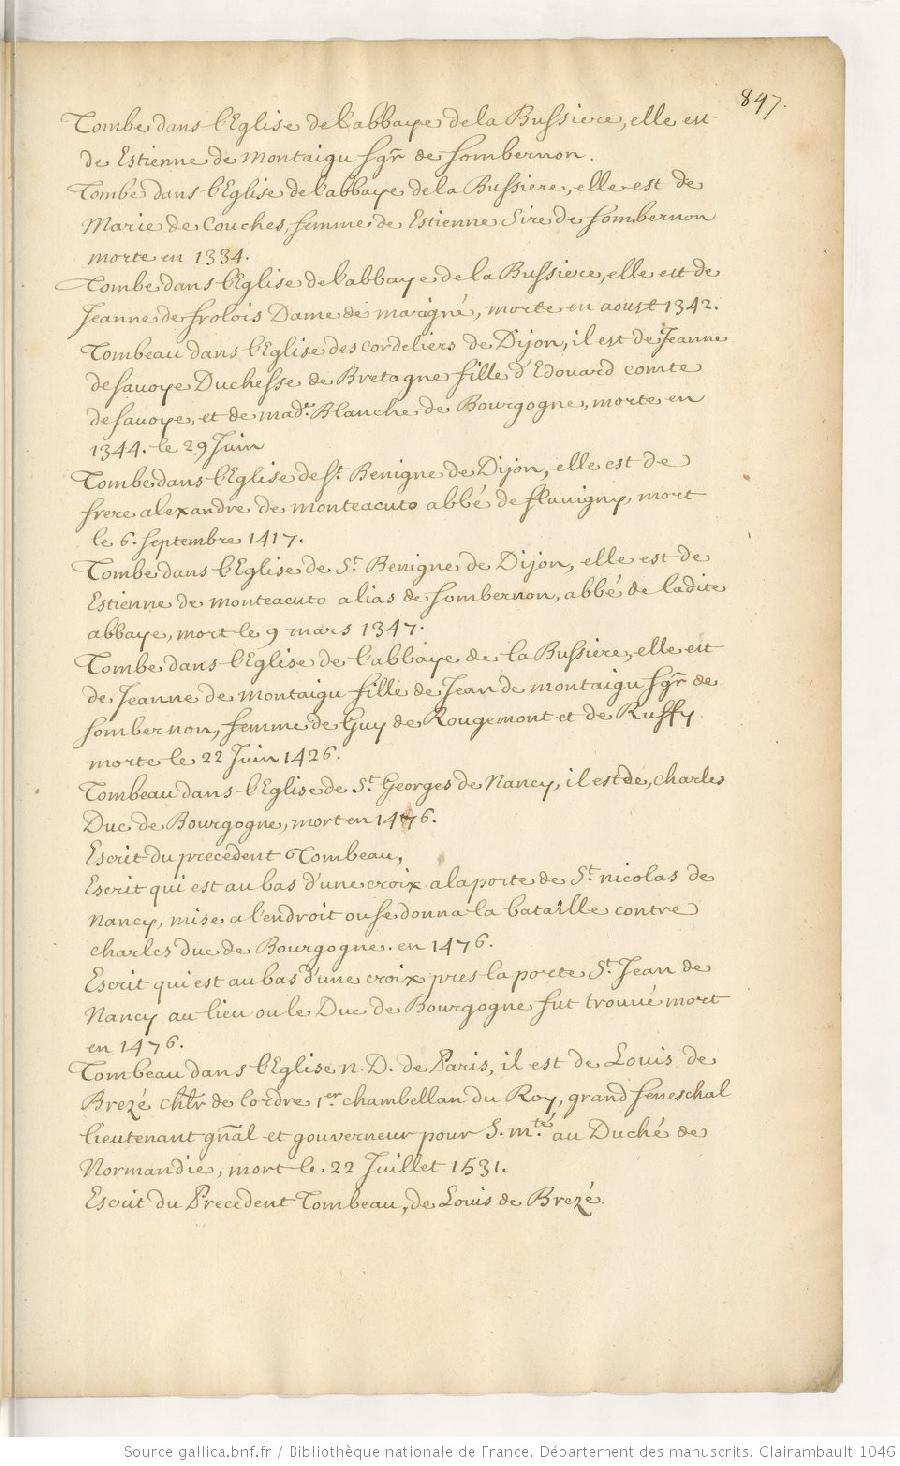 847.
Tombe dans l'Eglise de l'abbaye de la Bussiere, elle est
de Estienne de Montaigu sgr de Sombernon.
Tombe dans l'Eglise de l'abbaye de la Bussiere, elle est de
Marie de Couches, femme de Estienne Sire de Sombernon
morte en 1334.
Tombe dans l'Eglise de l'abbaye de la Bussiere, elle est de
Jeanne de frolois Dame de marigné, morte en aoust 1342.
Tombeau dans l'Eglise des cordeliers de Dijon, il est de Jeanne
de Savoye Duchesse de Bretagne fille d'Edouard comte
de Savoye, et de made Blanche de Bourgogne, morte en
1344. le 29 Juin
Tombe dans l'Eglise de St. Benigne de Dijon, elle est de
frere alexandre de monteacuto abbé de flavigny, mort
le 6. Septembre 1417.
Tombe dans l'Eglise de St. Benigne de Dijon, elle est de
Estienne de monteacuto alias de Sombernon, abbé de ladite
abbaye, mort le 9 mars 1347.
Tombe dans l'Eglise de l'abbaye de la Bussiere, elle est
de Jeanne de montaigu fille de Jean de montaigu sgr de
Sombernon, femme de Guy de Rougemont et de Ruffy
morte le 22 Juin 1426.
Tombeau dans l'Eglise de St. Georges de Nancy, il est de, charles
Duc de Bourgogne, mort en 1476.
Escrit du precedent Tombeau,
Escrit qui est au bas d'une croix a la porte de St. nicolas de
Nancy, mise a l'endroit ou se donna la bataille contre
charles duc de Bourgogne. en 1476.
Escrit qui est au bas d'une croix pres la porte St. Jean de
Nancy au lieu ou le Duc de Bourgogne fut trouué mort
en 1476.
Tombeau dans l'Eglise n. D. de Paris, il est de Louis de
Brezé chlr de l'ordre 1er chambellan du Roy, grand seneschal
lieutenant gñal et gouverneur pour S. mté. au Duché de
Normandie, mort le. 22 Juillet 1531.
Escrit du Precedent Tombeau, de Louis de Brezé.
Source gallica.bnf.fr / Bibliothèque nationale de France. Département des manuscrits. Clairambault 1046